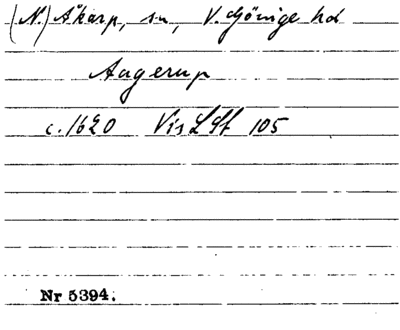 (N.) Åkarp, sn, V. Göinge hd
Aagerup
c. 1620 Vis LSt 105
Nr 5394.